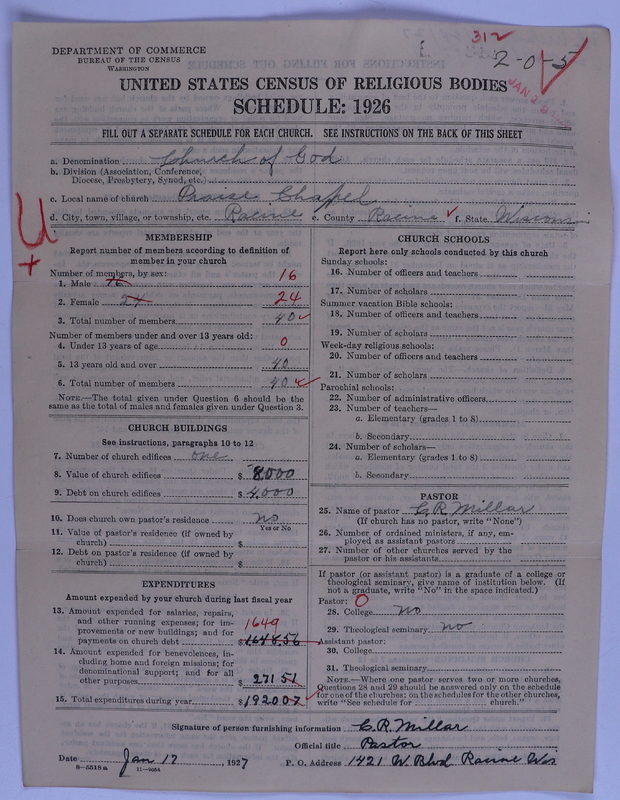 312
2-0-5
DEPARTMENT OF COMMERCE
BUREAU OF THE CENSUS
WASHINGTON
UNITED STATES CENSUS OF RELIGIOUS BODIES
SCHEDULE: 1926
FILL OUT A SEPARATE SCHEDULE FOR EACH CHURCH. SEE INSTRUCTIONS ON THE BACK OF THIS SHEET
a. Denomination Church of God
b. Division (Association, Conference, Diocese, Presbytery, Synod, etc.)
c. Local name of church Praise Chapel
d. City, town, village, or township, etc. Racine e. County Racine f. State Wisconsin
U
+
MEMBERSHIP
Report number of members according to definition of
member in your church
Number of members, by sex:
1. Male 16
2. Female 24 24
3. Total number of members 40
Number of members under and over 13 years old:
4. Under 13 years of age 0
5. 13 years old and over 40
6. Total number of members 40
NOTE.—The total given under Question 6 should be
same as the total of males and females given under Question 3.
CHURCH BUILDINGS
See instructions, paragraphs 10 to 12
7. Number of church edifices one
8. Value of church edifices $ 8,000
9. Debt on church edifices $ 4,000
10. Does church own pastor's residence no
Yes or No
11. Value of pastor's residence (if owned by
church) $
12. Debt on pastor's residence (if owned by
church) $
EXPENDITURES
Amount expended by your church during last fiscal year
13. Amount expended for salaries, repairs,
and other running expenses; for im-
provements or new buildings; and for
payments on church debt $ 1648 56
1649
14. Amount expended for benevolences, in-
cluding home and foreign missions; for
denominational support; and for all
other purposes $ 271 51
15. Total expenditures during year $ 1920 07
CHURCH SCHOOLS
Report here only schools conducted by this church
Sunday schools:
16. Number of officers and teachers
17. Number of scholars
Summer vacation Bible schools:
18. Number of officers and teachers
19. Number of scholars
Week-day religious schools:
20. Number of officers and teachers
21. Number of scholars
Parochial schools:
22. Number of administrative officers
23. Number of teachers—
a. Elementary (grades 1 to 8)
b. Secondary
24. Number of scholars—
a. Elementary (grades 1 to 8)
b. Secondary
PASTOR
25. Name of pastor C R Millar
(If church has no pastor, write "None")
26. Number of ordained ministers, if any, em-
ployed as assistant pastors
27. Number of other churches served by the
pastor or his assistants
If pastor (or assistant pastor) is a graduate of a college or
theological seminary, give name of institution below. (If
not a graduate, write "No" in the space indicated.)
Pastor: 0
28. College no
29. Theological seminary no
Assistant pastor:
30. College
31. Theological seminary
NOTE.—Where one pastor serves two or more churches,
Questions 28 and 29 should be answered only on the schedule
for one of the churches; on the schedules for the other churches,
write "See schedule for church."
Signature of person furnishing information C. R. Millar
Official title Pastor
Date Jan 17, 1927 P. O. Address 1421 W. Blvd Racine Wis
8—5518a 11—9054